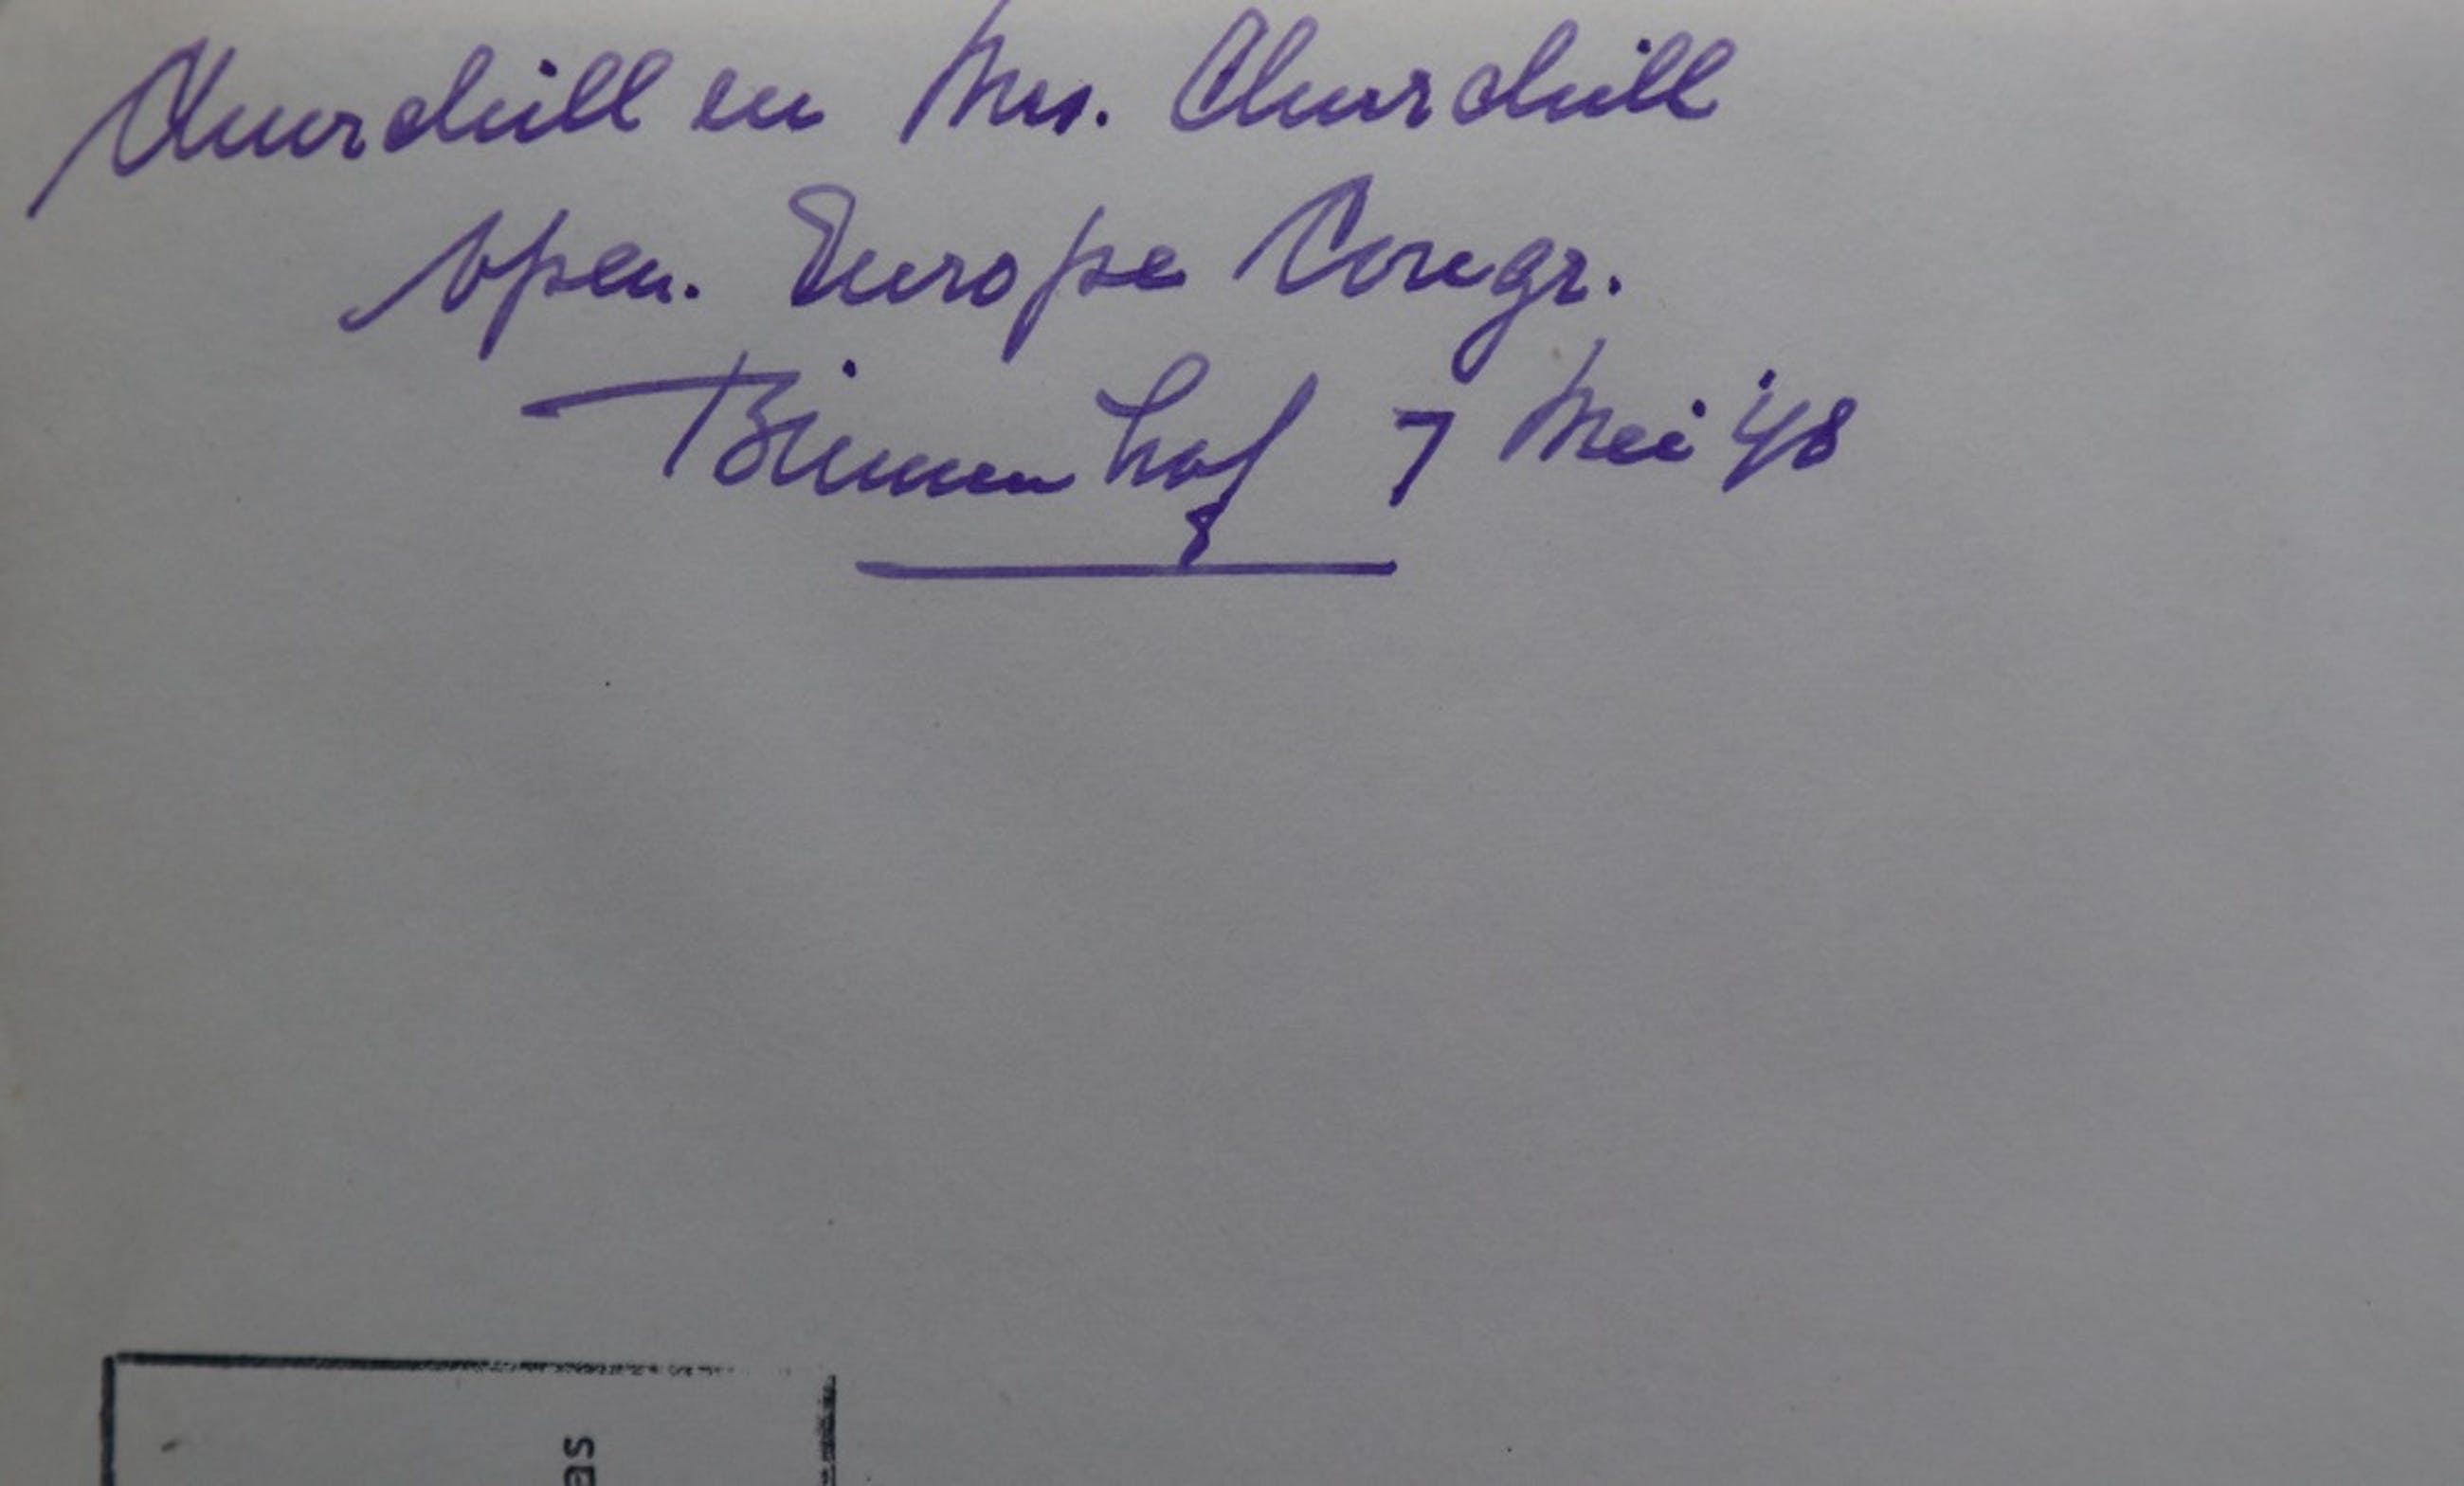 Churchill en Mrs. Churchill
open. Europe Congr.
Binnenhof 7 Mei '48
as